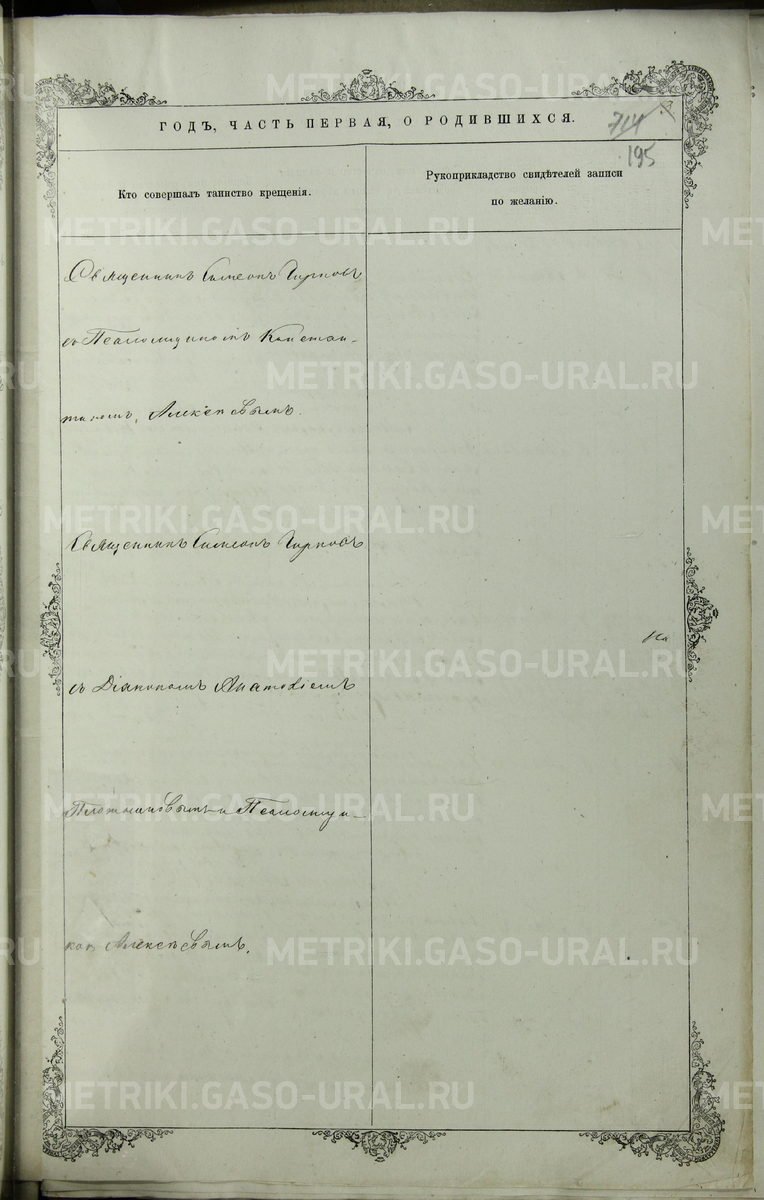 ГОДЪ, ЧАСТЬ ПЕРВАЯ, О РОДИВШИХСЯ.
714
195
Кто совершалъ таинство крещенія.
Рукоприкладство свидѣтелей записи
по желанію.
Священникъ Симеонъ
съ Псаломщикомъ Констан-
тиномъ Алексѣевымъ.
Священникъ Симеонъ
съ Діакономъ Анатоліемъ
Плотниковымъ и Псаломщи-
комъ Алексѣевымъ.
METRIKI.GASO-URAL.RU